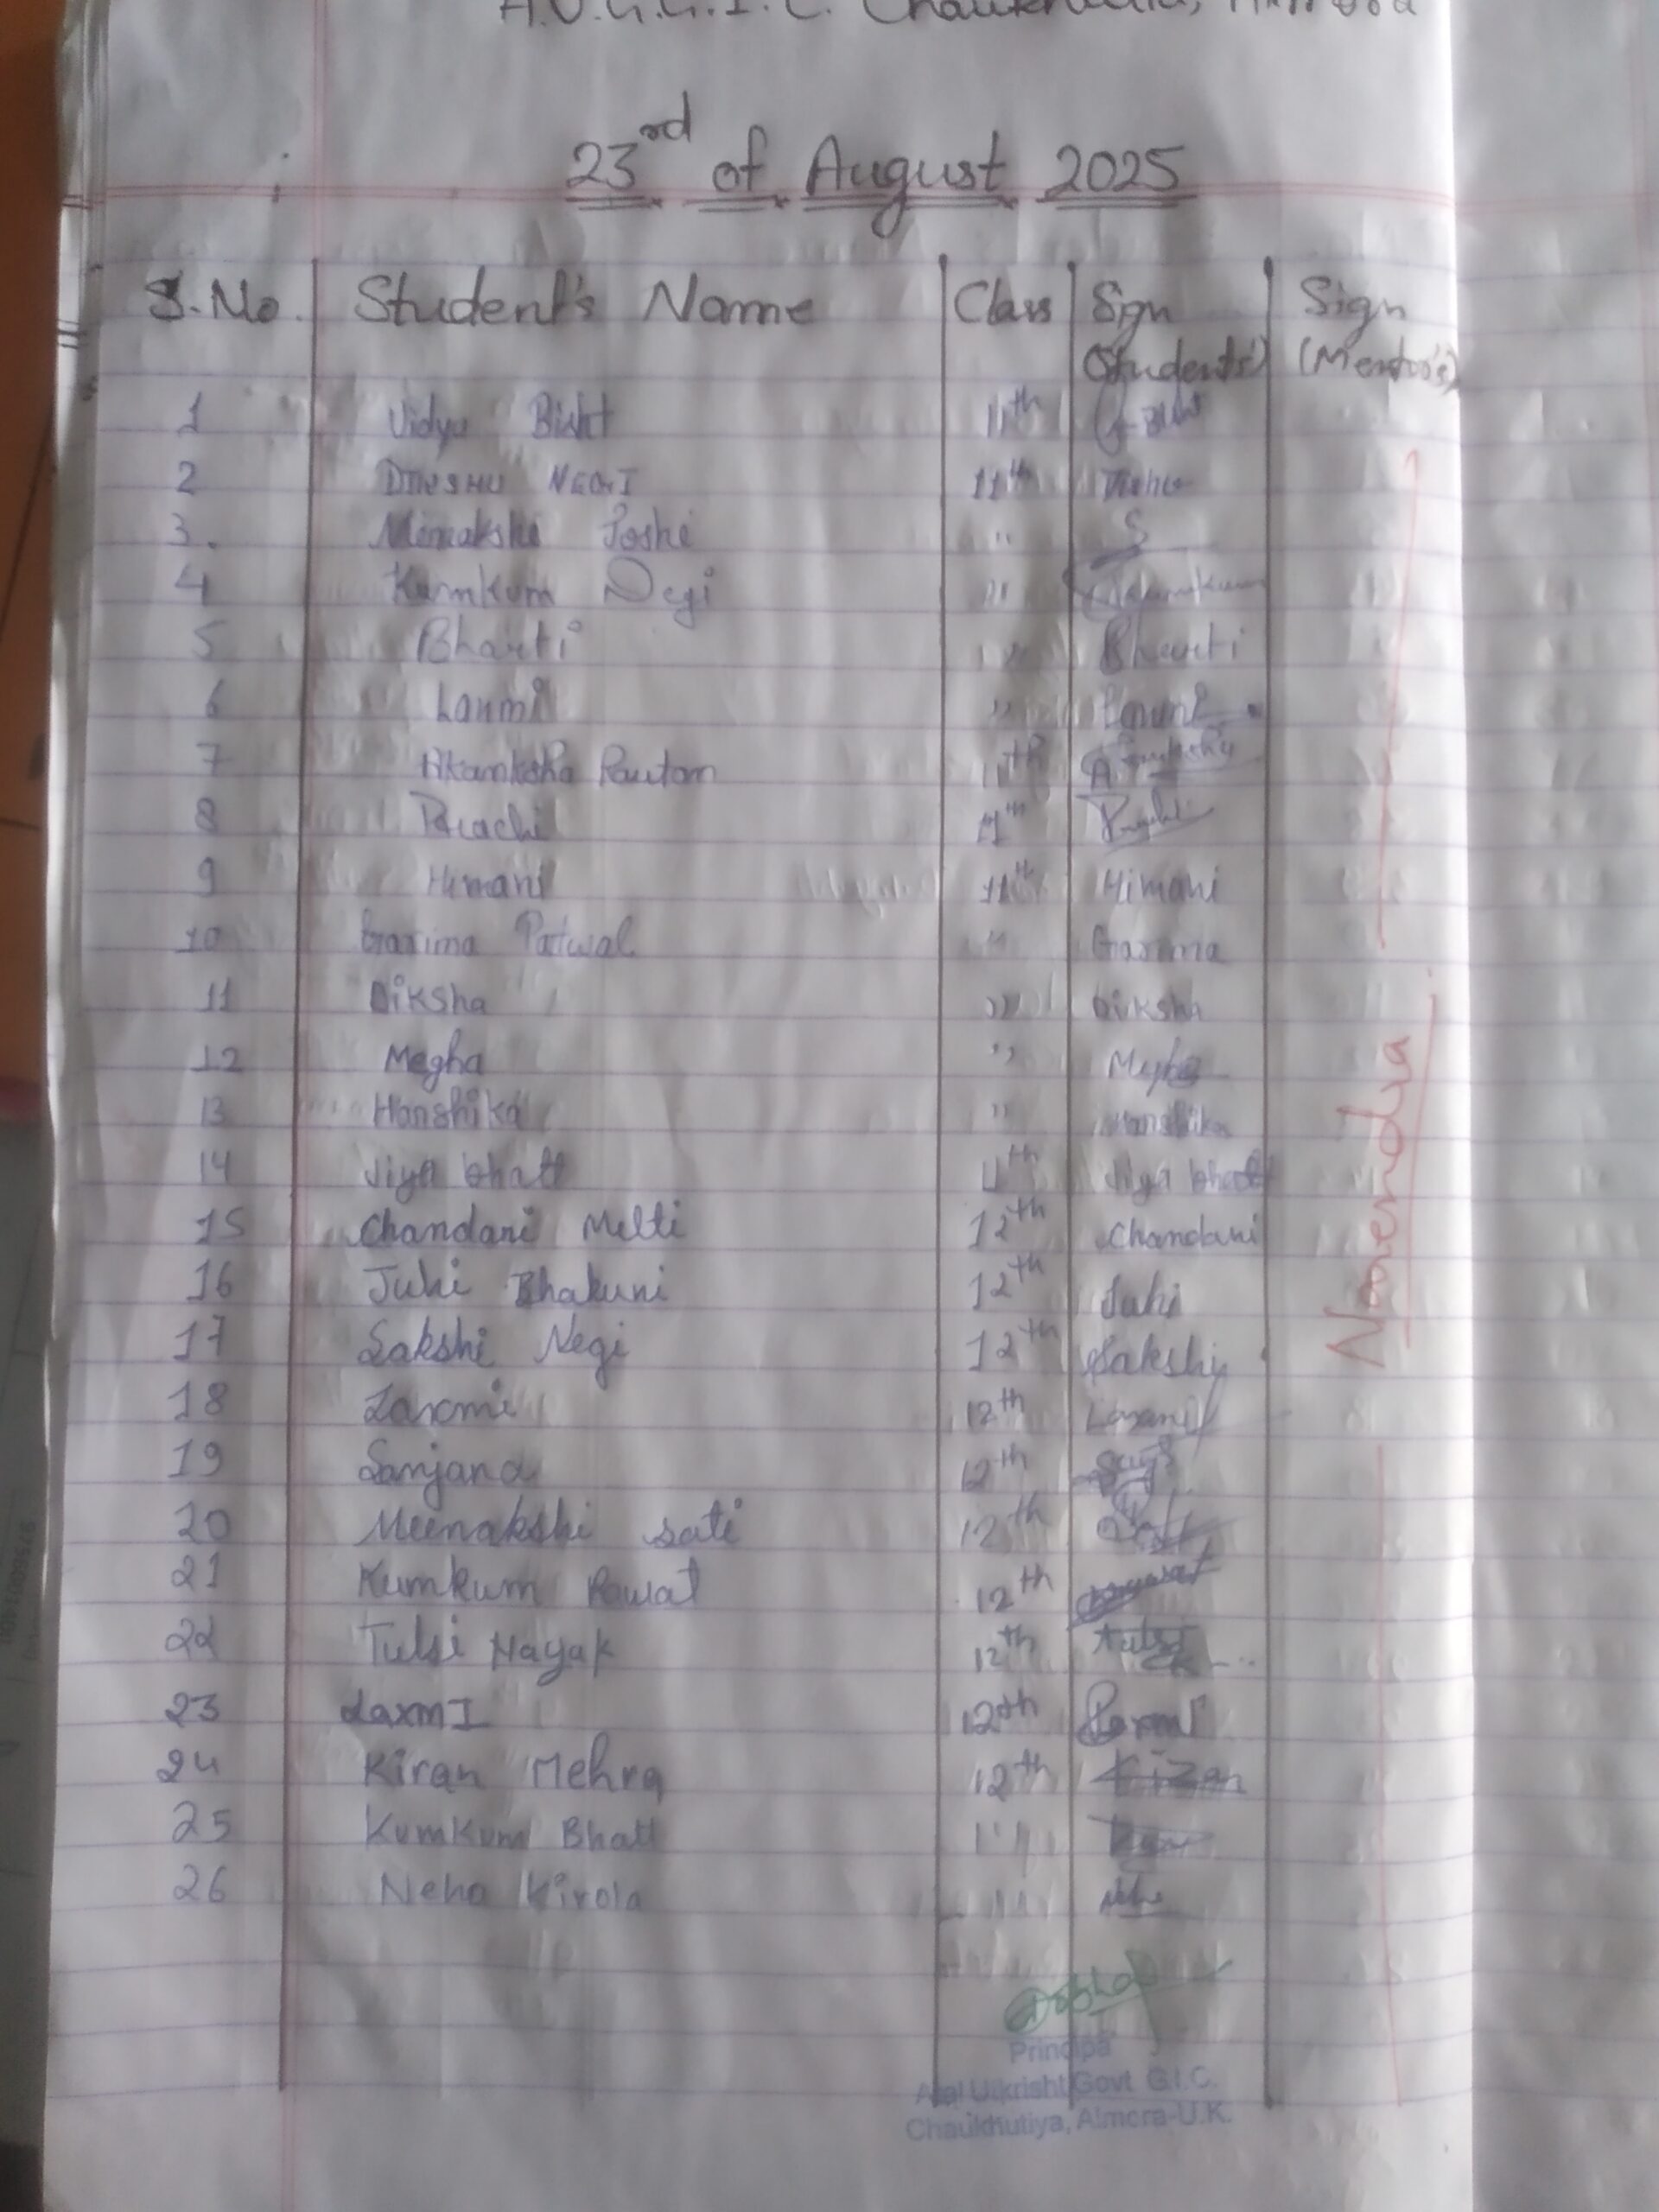 A.U.G.G.I.C. Chaukhutia, Almora
23rd of August 2025
S.No. Student's Name Class Sign (Students') Sign (Mentor's)
1 Vidya Bisht 11th
2 NEGI 11th
3. Minakshi Joshi "
4 Kumkum Negi "
5 Bharti " Bharti
6 Laxmi " Laxmi
7 Akanksha Rautam 11th Akanksha
8 Prachi 11th Prachi
9 Himani 11th Himani
10 Garima Patwal " Garima
11 Diksha " Diksha
12 Megha " Megha
13 Hanshika " Hanshika
14 Jiya bhatt 11th Jiya bhatt
15 Chandani Melti 12th Chandani
16 Juhi Bhakuni 12th Juhi
17 Sakshi Negi 12th Sakshi
18 Laxmi 12th Laxmi
19 Sanjana 12th
20 Meenakshi sati 12th
21 Kumkum Rawat 12th Rawat
22 Tulsi Nayak 12th Tulsi
23 LaxmI 12th Laxmi
24 Kiran Mehra 12th Kiran
25 Kumkum Bhatt "
26 Neha Kirola "
Narendra
Principal
Atal Utkrisht Govt G.I.C.
Chaukhutiya, Almora-U.K.